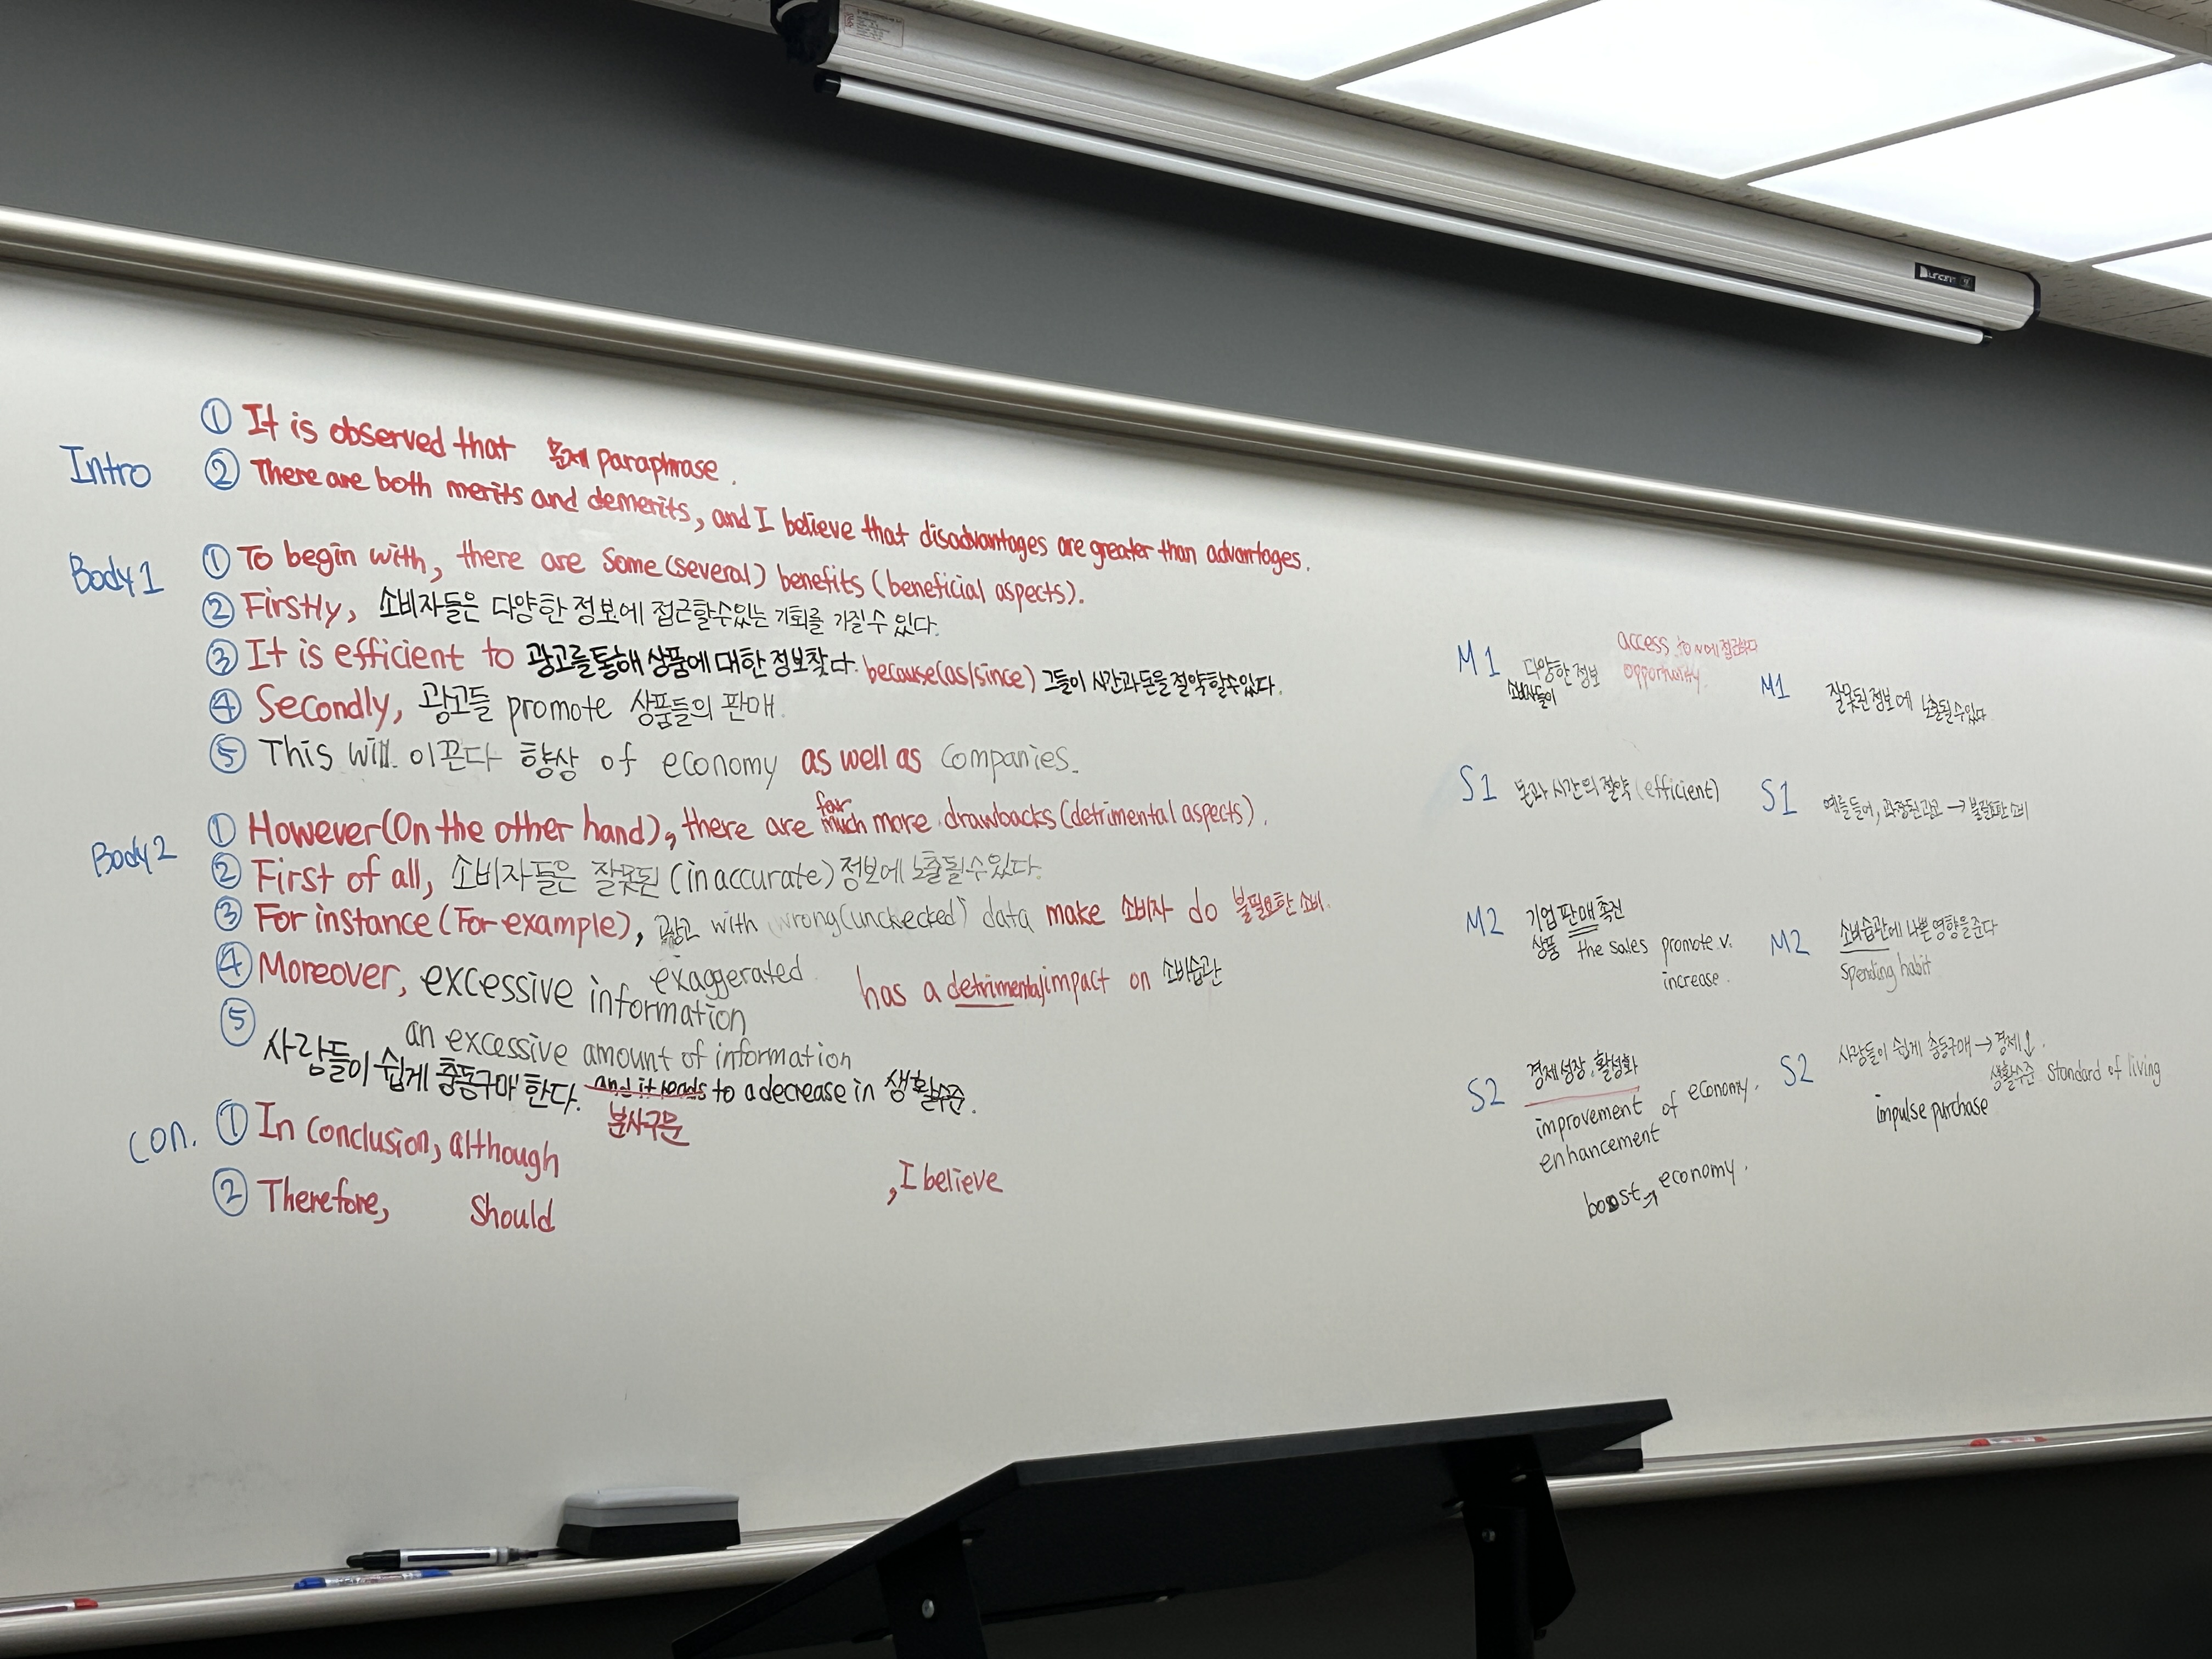 Intro
① It is observed that 문제 paraphrase.
② There are both merits and demerits, and I believe that disadvantages are greater than advantages.
Body 1
① To begin with, there are some (several) benefits (beneficial aspects).
② Firstly, 소비자들은 다양한 정보에 접근할수있는 기회를 가질 수 있다.
③ It is efficient to 광고를통해 상품에 대한 정보찾다. because(as/since) 그들이 시간과돈을절약할수있다.
④ Secondly, 광고들 promote 상품들의 판매.
⑤ This will 이끈다 향상 of economy as well as companies.
Body 2
far
① However(On the other hand), there are much more drawbacks (detrimental aspects).
② First of all, 소비자들은 잘못된 (inaccurate) 정보에 노출될수있다.
③ For instance (For example), 광고 with wrong(unckecked) data make 소비자 do 불필요한 소비.
④ Moreover, excessive information has a detrimental impact on 소비습관
exaggerated
an excessive amount of information
⑤ 사람들이 쉽게 충동구매 한다. and it leads to a decrease in 생활수준.
분사구문
Con.
① In conclusion, although , I believe
② Therefore, should
M1 다양한 정보
소비자들이
access to N에 접근하다
opportunity.
S1 돈과 시간의 절약 (efficient)
M2 기업 판매 촉진
상품 the sales promote v.
increase.
S2 경제성장, 활성화
improvement of economy.
enhancement
boost economy.
M1 잘못된 정보에 노출될수있다
S1 예를들어, 과장된광고 → 불필요한 소비
M2 소비습관에 나쁜 영향을 준다
Spending habit
S2 사람들이 쉽게 충동구매 → 경제↓.
생활수준 standard of living
impulse purchase